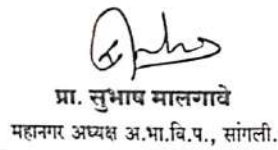 प्रा. सुभाष मालगावे
महानगर अध्यक्ष अ.भा.वि.प., सांगली.